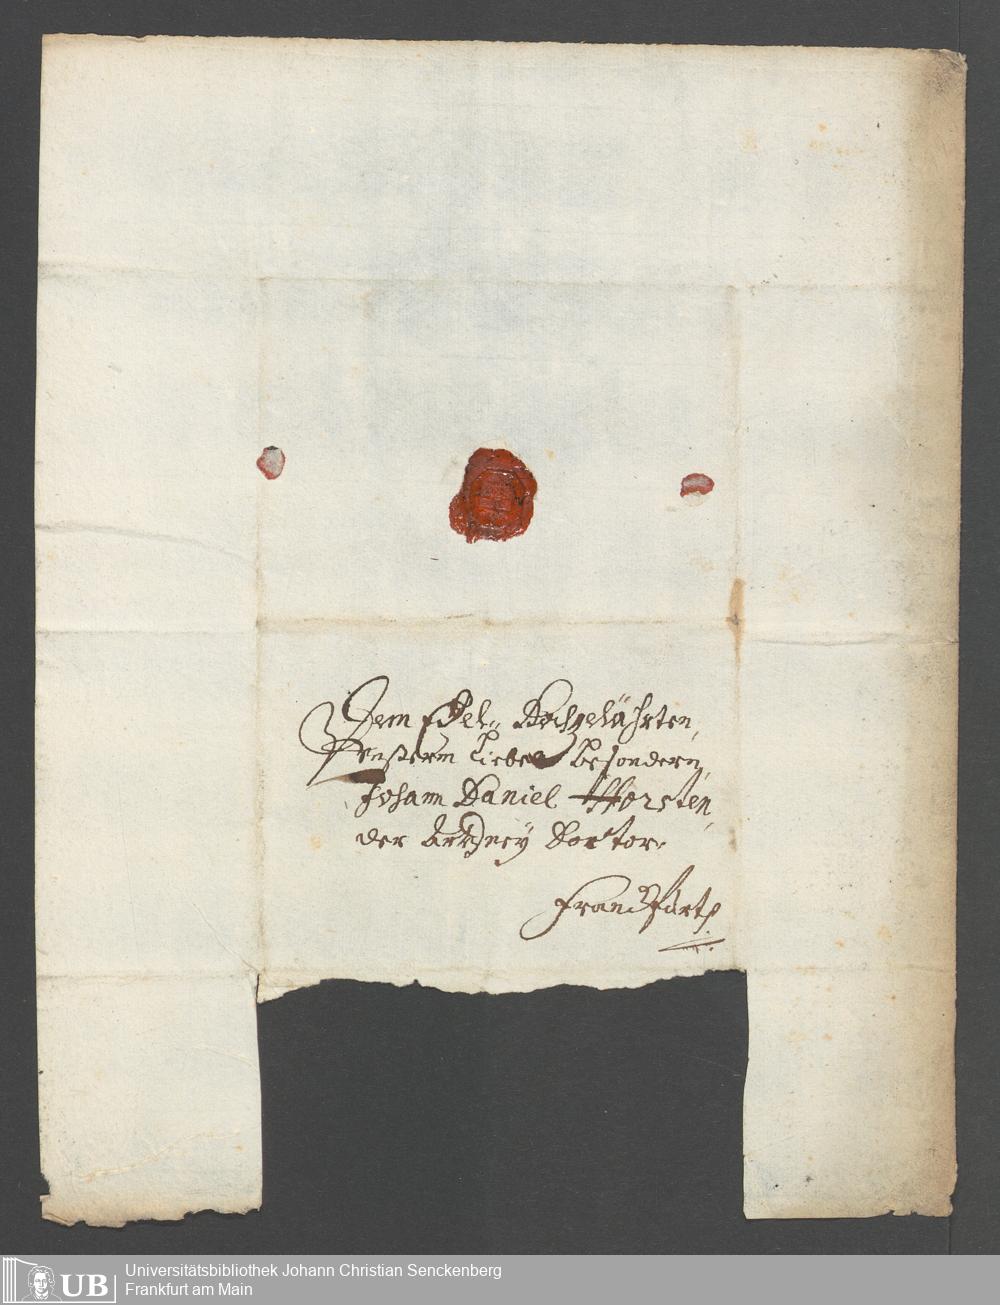 Dem Edel„ Hochgelährten,
Unßerm Lieben Besondern,
Johann Daniel Horsten,
der Artzney Doctor.
Franckfurth
UB
Universitätsbibliothek Johann Christian Senckenberg
Frankfurt am Main